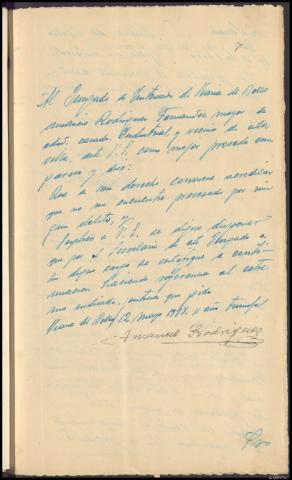 7
Al Juzgado de Instrucción de Viana del Bollo
Amancio Rodriguez Fernandez, mayor de
edad, casado, Industrial y vecino de esta
villa, ante V.S. como mejor proceda com
parece y dice:
Que a mi derecho conviene acreditar
que no me encuentro procesado por nin
gun delito, y
Suplico a V.S. se digne disponer
que por el Secretario de este Juzgado a
su digno cargo se extienda a conti
nuacion haciendo referencia al extre
mo indicado, justicia que pido
Viana del Bollo 12 Mayo 1938. II año Triunfal
Amancio Rodriguez